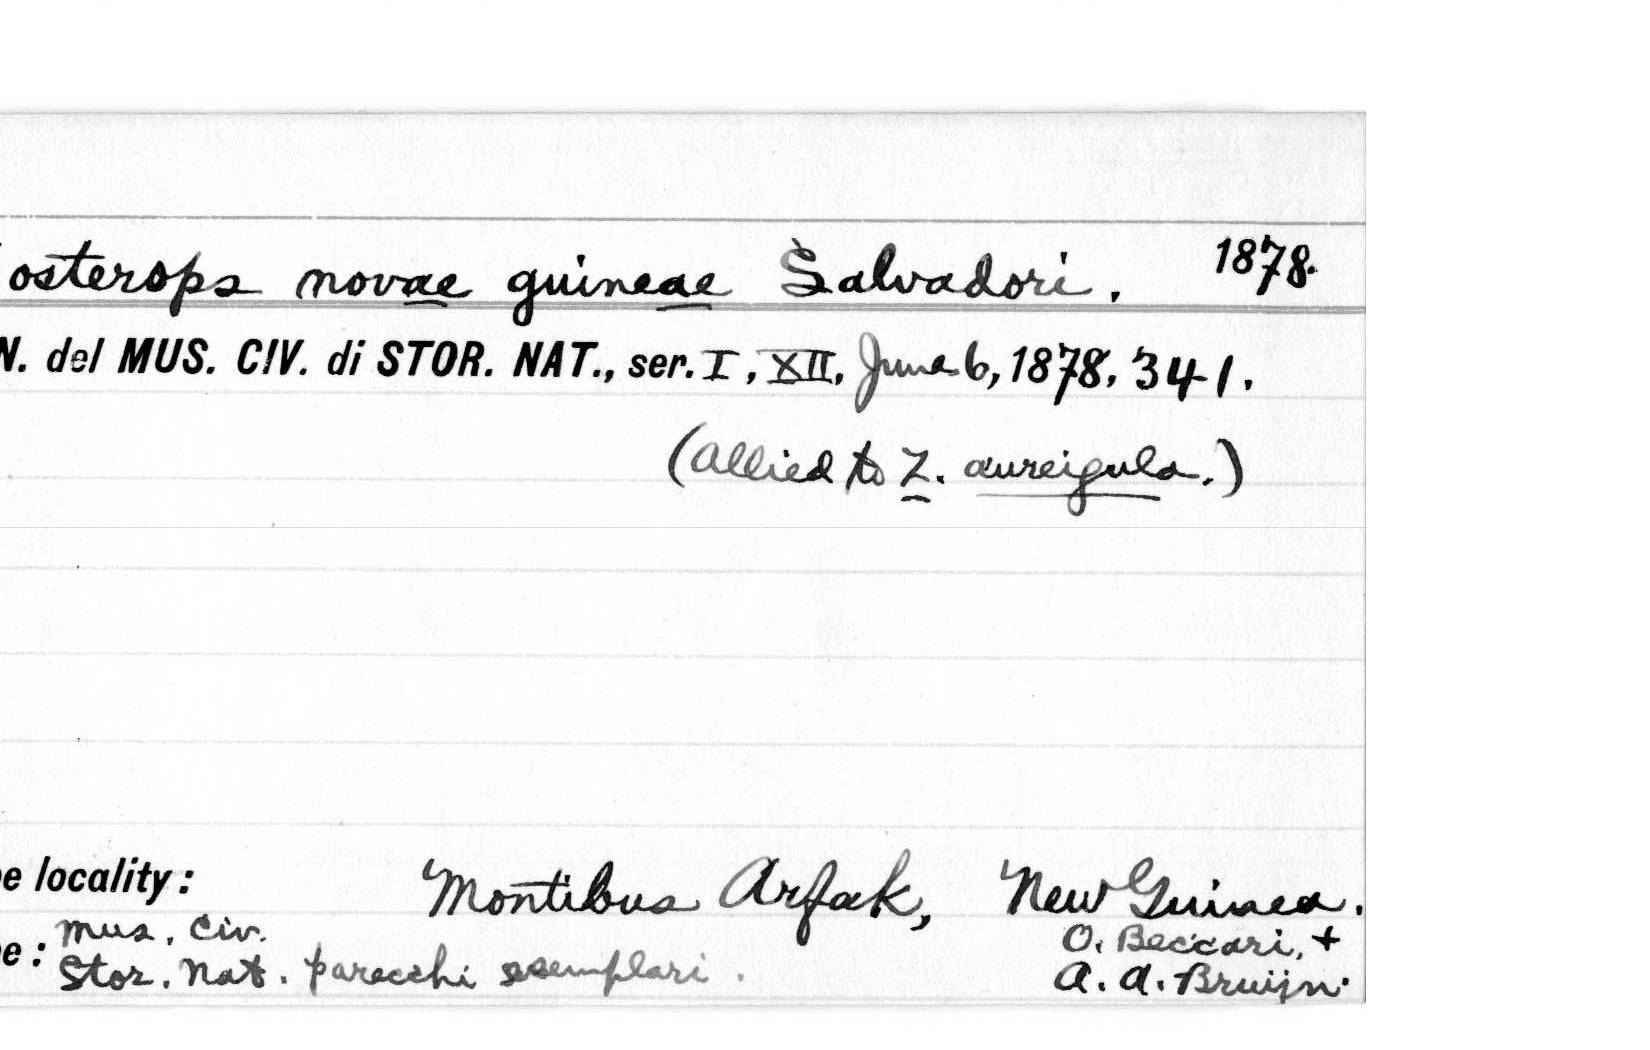 osterops novae guineae Salvadori. 1878.
N. del MUS. CIV. di STOR. NAT., ser. I, XII, June 6, 1878, 341.
(allied to Z. aureigula.)
e locality: Montibus Arfak, New Guinea.
Mus. Civ. O. Beccari, +
e: Stor. Nat. parecchi esemplari. A. A. Bruijn.